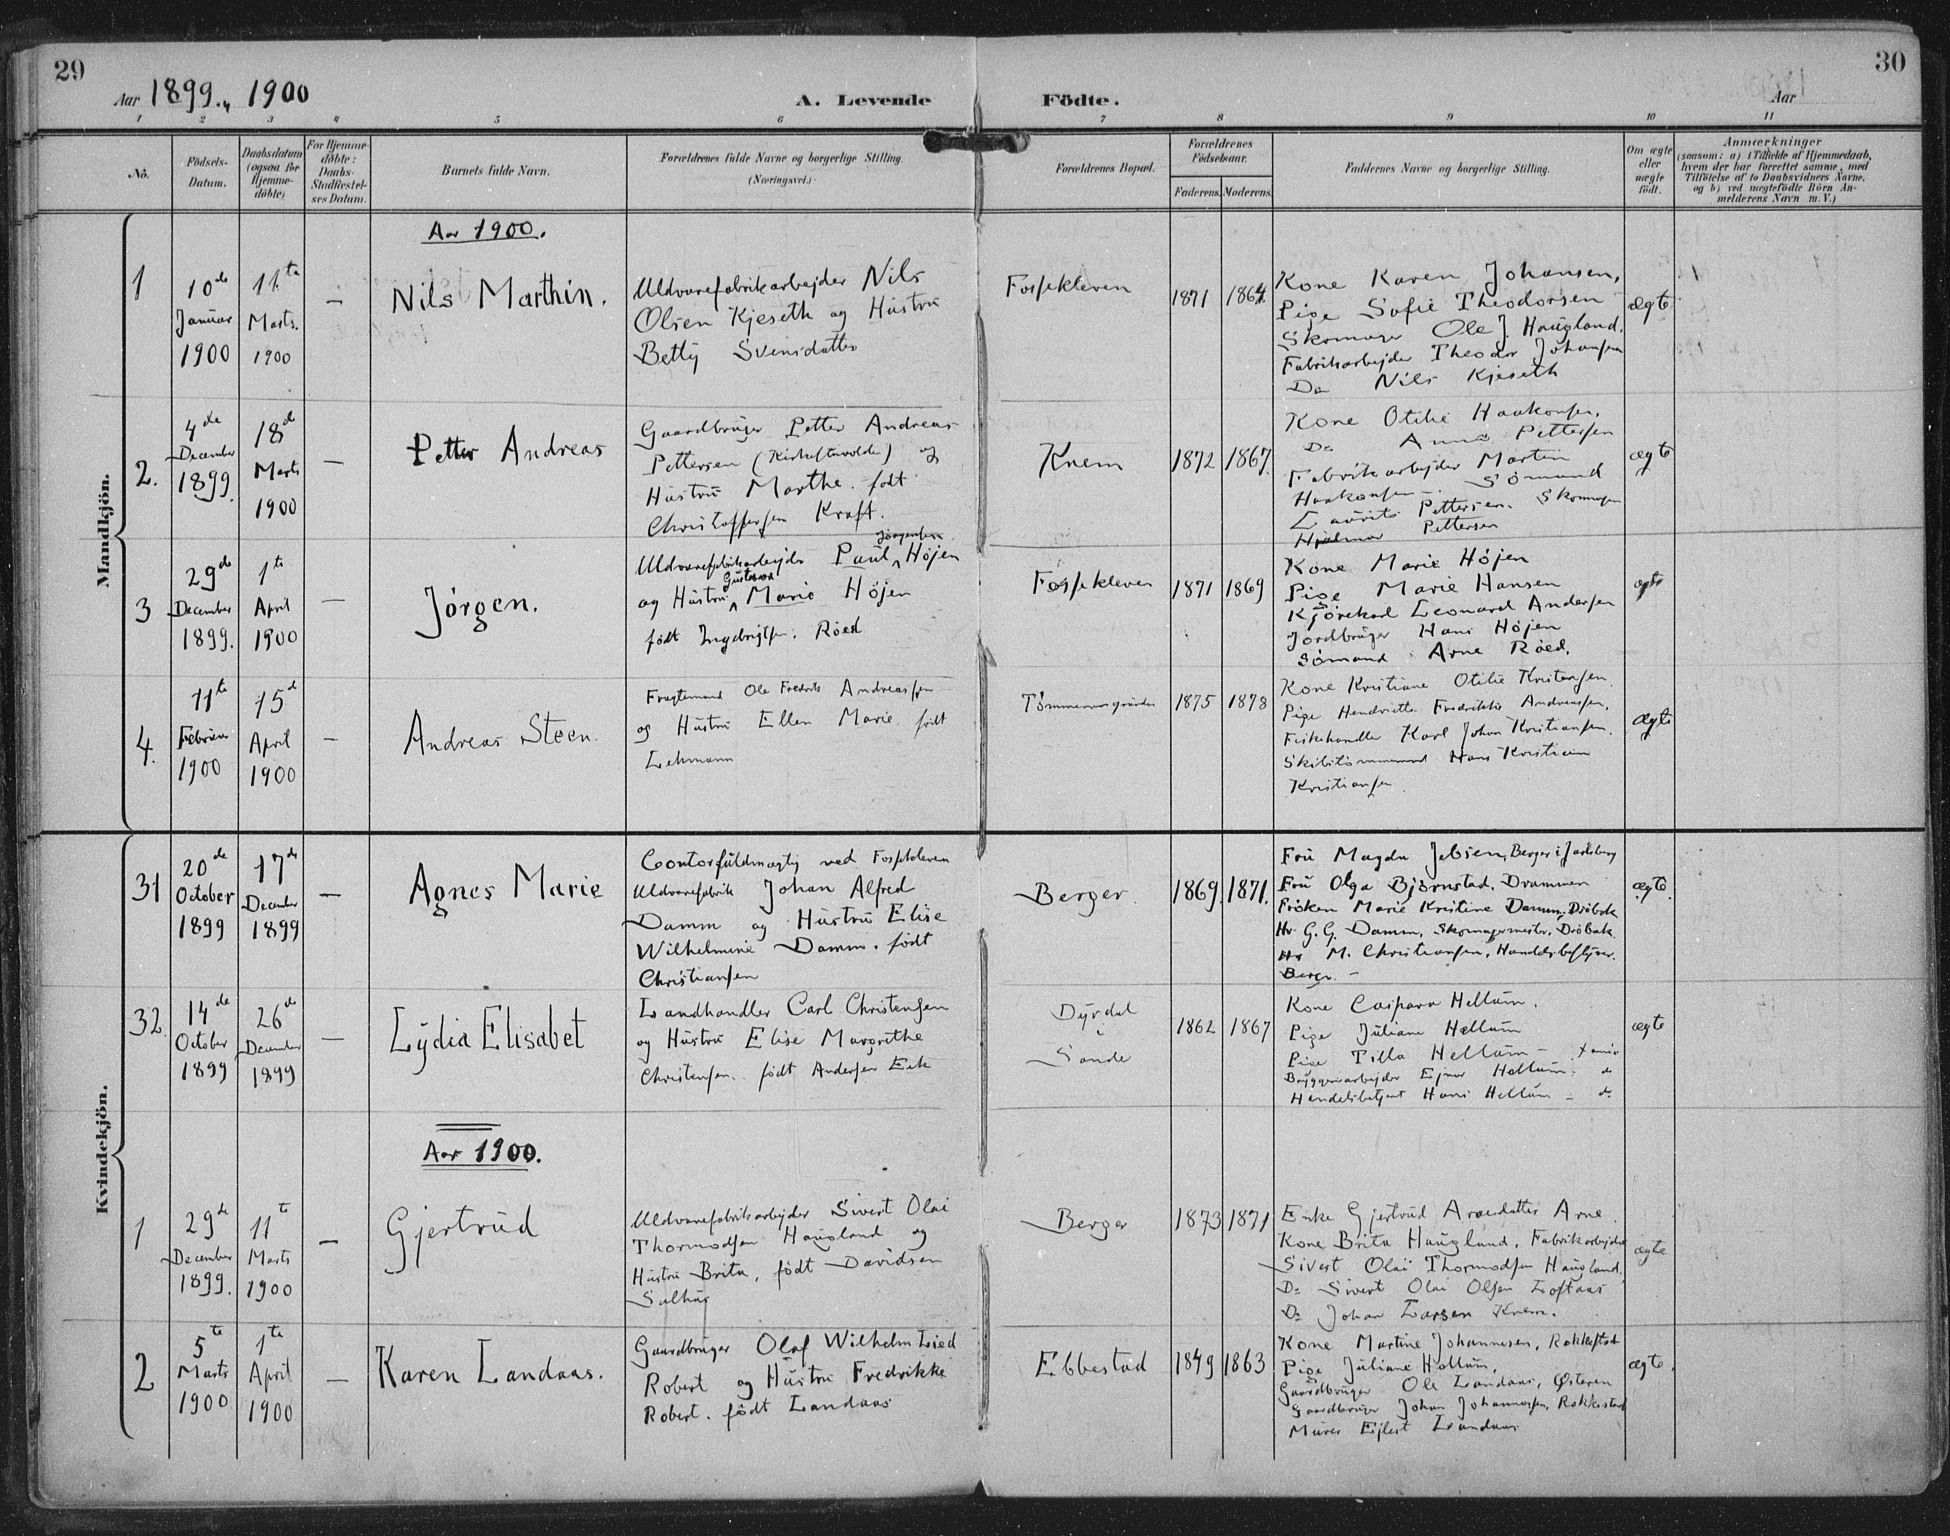 29
30
Aar 1899., 1900
A. Levende Födte.
Aar
1 2 3 4 5 6 7 8 9 10 11
No.
Födsels-Datum.
Daabsdatum (ogsaa for Hjemme-döbte)
For Hjemme-döbte: Daabs-Stadfæstel-ses Datum.
Barnets fulde Navn.
Forældrenes fulde Navne og borgerlige Stilling.
(Næringsvei.)
Forældrenes Bopæl.
Forældrenes Födselsaar.
Faderens. Moderens.
Faddernes Navne og borgerlige Stilling.
Om ægte eller uægte födt.
Anmærkninger
(saasom: a) i Tilfælde af Hjemmedaab, hvem der har forrettet samme, med Tilföielse af to Daabsvidners Navne, og b) ved uægtefödte Börn An-melderens Navn m. V.)
Mandkjön.
Aar 1900.
1
10de Januar 1900
11te Marts. 1900
—
Nils Marthin.
Uldvarefabrikarbejder Nils
Olsen Kjeseth og Hustru
Betty Svensdatter
Fossekleven
1871 1864.
Kone Karen Johansen,
Pige Sofie Theodorsen
Skomager Ole J. Haugland.
Fabrikarbejder Theodor Johansen
Do Nils Kjeseth
ægte
2.
4de December 1899.
18de Marts 1900
—
Petter Andreas
Gaardbruger Petter Andreas
Pettersen (Kirketvedt) og
Hustru Marthe. født
Christoffersen Kraft.
Knem
1872 1867.
Kone Otilie Haakonsen.
Do Anna Pettersen
Fabrikarbejder Martin
Haakonsen — Sømand
Laurits Pettersen. Skomager
Hjalmar Pettersen
ægte
3
29de December 1899.
1te April 1900
—
Jørgen.
Jørgensen
Uldvarefabrikarbejder Paul Højen
Gustava
og Hustru Marie Højen
født Ingebrigtsen. Røed
Fossekleven
1871 1869
Kone Marie Højen
Pige Marie Hansen
Kjørekarl Leonard Andersen
Jordbruger Hans Højen
Sømand Arne Røed.
ægte
4.
11te Februar 1900
15de April 1900
—
Andreas Steen.
Fragtemand Ole Fredrik Andreassen
og Hustru Ellen Marie født
Lehmann
1875 1878
Kone Kristiane Otilie Kristensen
Pige Hendriette Fredrikke Andreassen,
Fiskehandler Karl Johan Kristiansen.
Skibstømmermand Hans Kristian
Kristiansen
ægte
Kvindekjön.
31
20de October 1899
17de December 1899
—
Agnes Marie
Contorfuldmægtig ved Fossekleven
Uldvarefabrik Johan Alfred
Damm og Hustru Elise
Wilhelmine Damm. født
Christiansen
Berger.
1869. 1871.
Fru Magda Jebsen, Berger i Jarlsberg
Fru Olga Bjørnstad. Drammen
Frøken Marie Kristine Damm. Drøbak
Hr. G. G. Damm, Skomagermester, Drøbak.
Hr M. Christiansen, Handelsbestyrer.
Berger. —
ægte.
32
14de October 1899
26de December 1899
—
Lydia Elisabet
Landhandler Carl Christensen
og Hustru Elise Margrethe
Christensen. født Andersen Eek
Dyrdal
i
Sande
1862 1867
Kone Caspara Hellum.
Pige Juliane Hellum
Pige Tilla Hellum —
Bryggeriarbejder Ejnar Hellum. do
Handelsbetjent Hans Hellum — do
ægte
Aar 1900.
1
29de December 1899.
11te Marts 1900
—
Gjertrud
Uldvarefabrikarbejder Sivert Olai
Thormodsen Haugland og
Hustru Brita, født Davidsen
Salhus
Berger
1873 1871
Enke Gjertrud Arnedatter Arne.
Kone Brita Haugland, Fabrikarbejder
Sivert Olai Thormodsen Haugland,
Do Sivert Olai Olsen Loftaas
Do Johan Larsen Knem.
ægte
2
5te Marts 1900
1te April 1900
—
Karen Landaas.
Gaardbruger Olaf Wilhelm Lied
Robert og Hustru Fredrikke
Robert. født Landaas
Ebbestad
1849 1863
Kone Martine Johannesen, Rokkestad
Pige Juliane Hellum,
Gaardbruger Ole Landaas, Østeren
Gaardbruger Johan Johannesen, Rokkestad
Murer Ejlert Landaas
ægte.